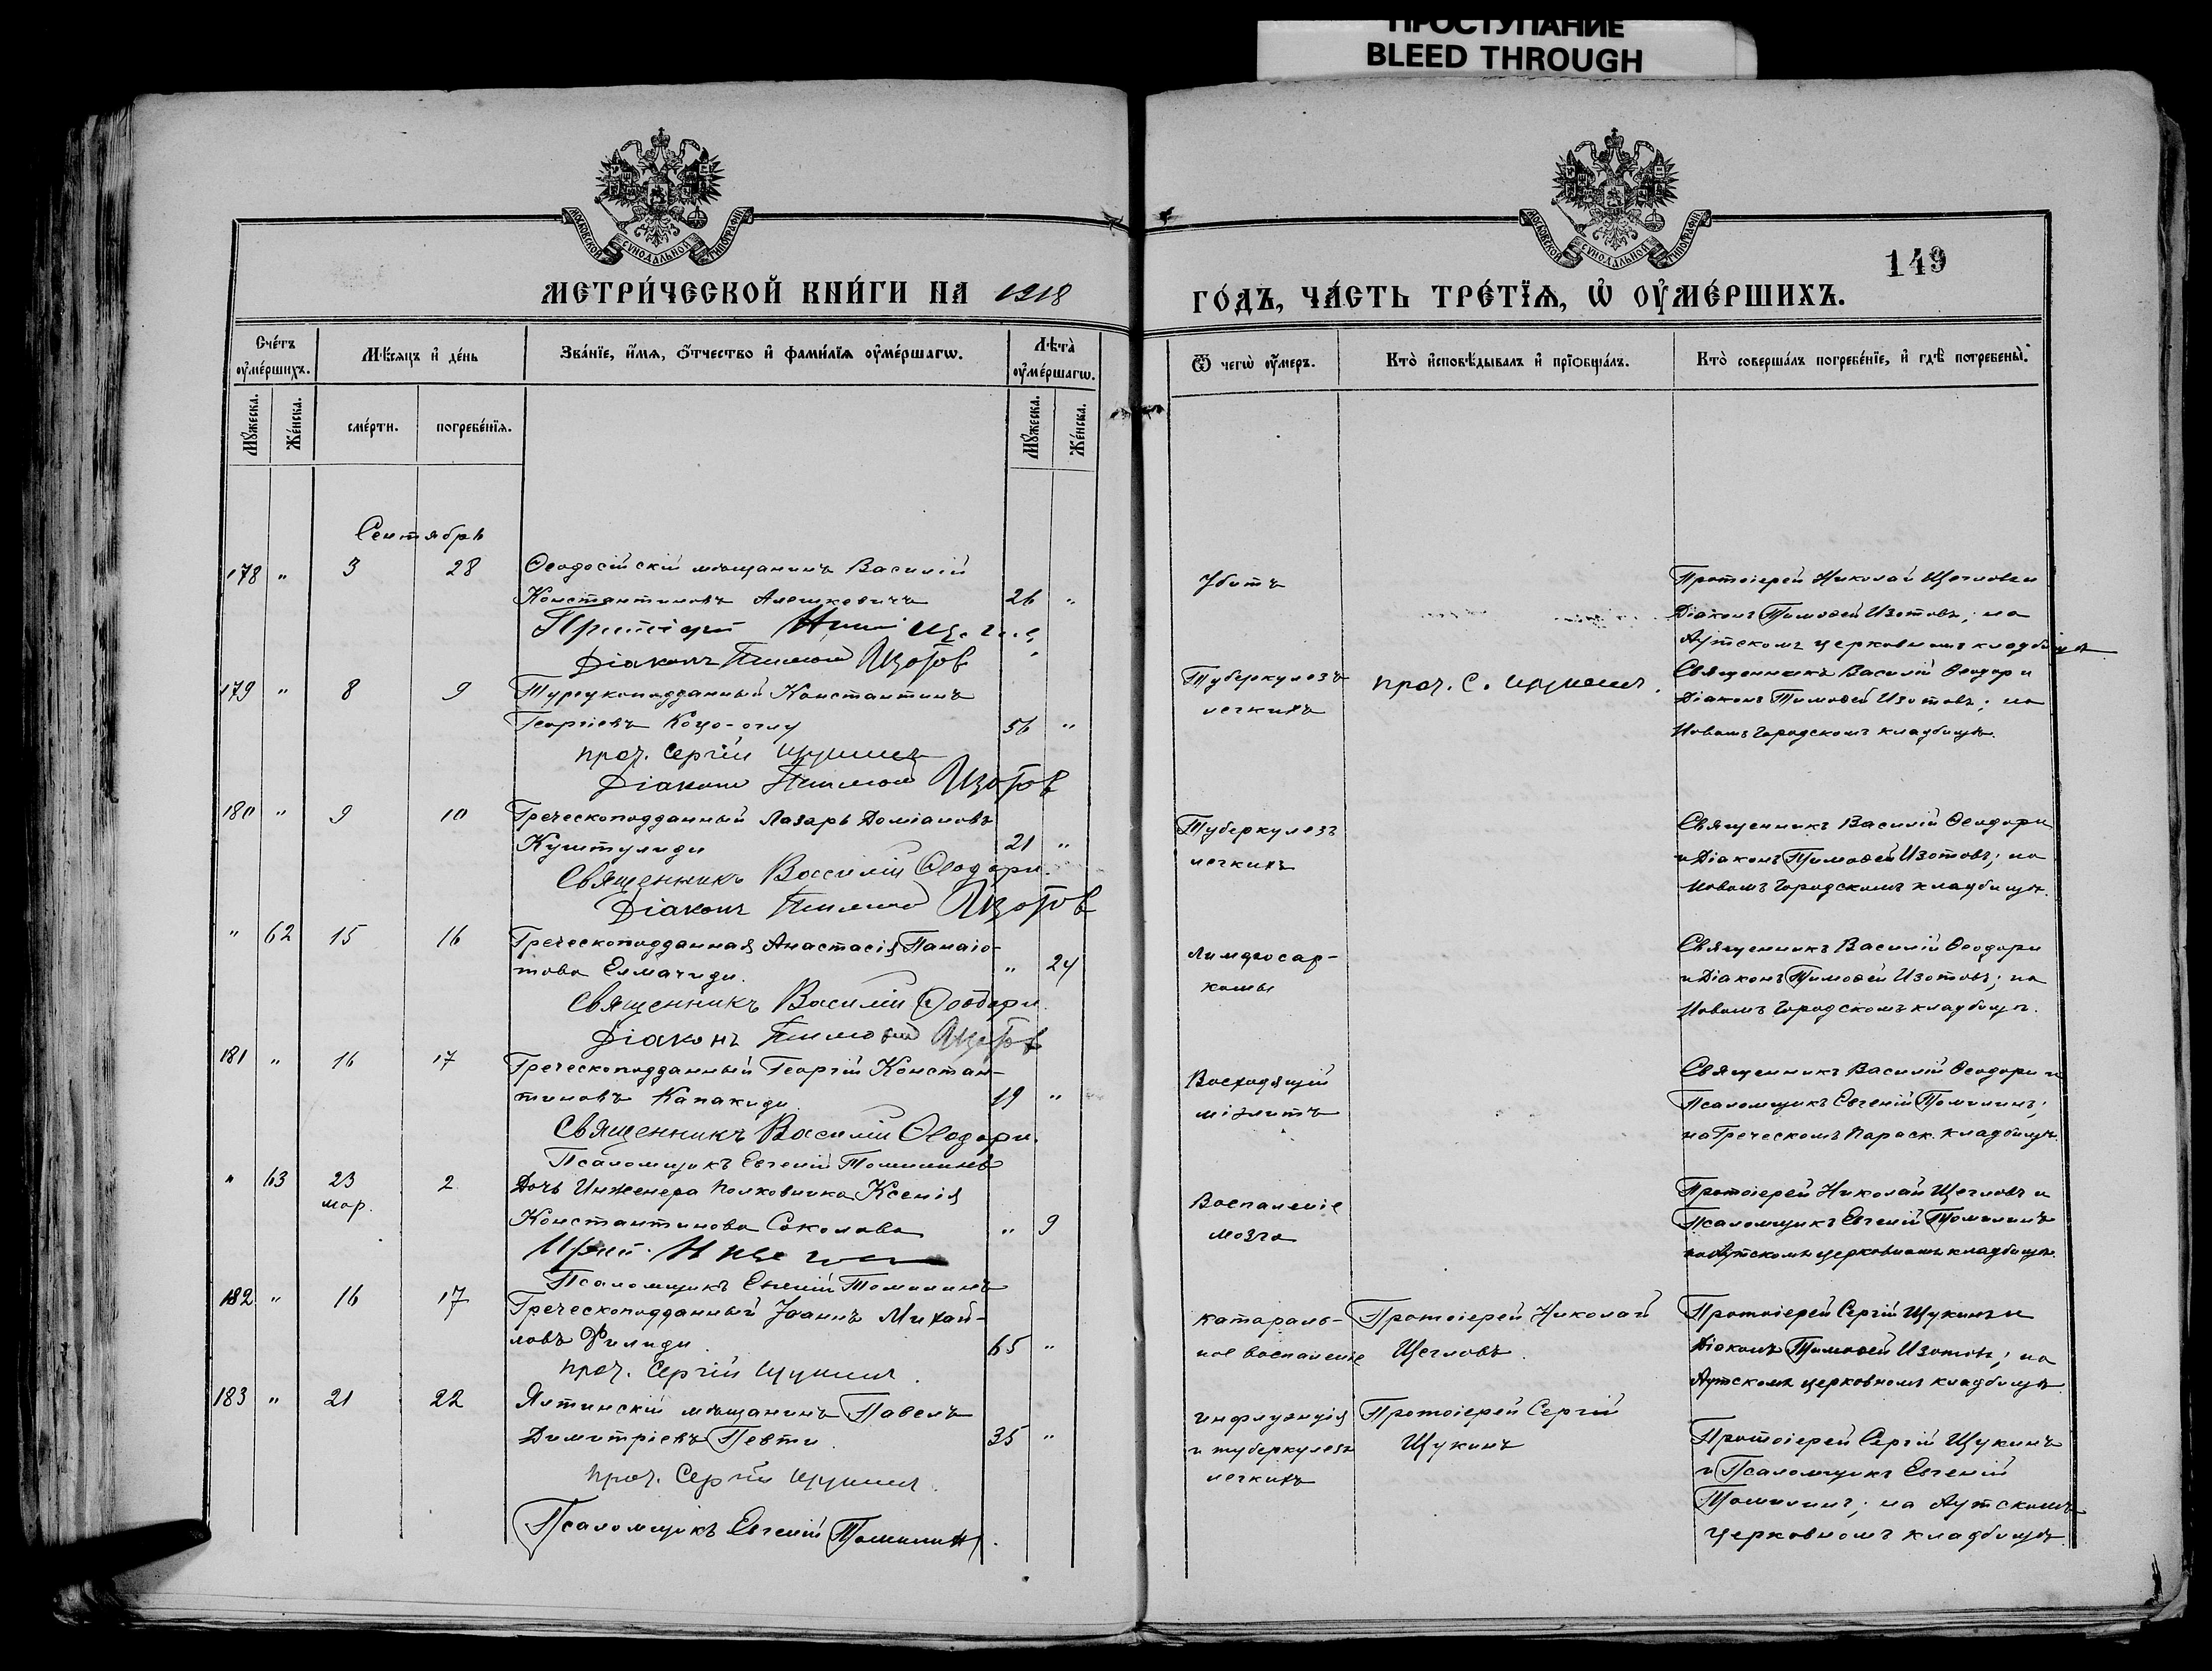 ПРОСТУПАНИЕ
BLEED THROUGH
МОСКОВСКОЙ СѴНОДАЛЬНОЙ ТИПОГРАФІИ
МОСКОВСКОЙ СѴНОДАЛЬНОЙ ТИПОГРАФІИ
149
МЕТРИ́ЧЕСКОЙ КНИ́ГИ НА 1918
ГО́ДЪ, ЧА́СТЬ ТРЕ́ТЇѦ, Ѡ҆ ОУ҆МЕ́РШИХЪ.
Сче́тъ оу҆ме́ршихъ.
Мѣ́сяцъ и҆ де́нь
Зва́нїе, и҆́мя, ѻ҆́тчество и҆ фами́лїя оу҆ме́ршагѡ.
Лѣта̀ оу҆ме́ршагѡ.
Ѿ чегѡ̀ оу҆́меръ.
Кто̀ и҆сповѣ́дывалъ и҆ прїѡбща́лъ.
Кто̀ соверша́лъ погребе́нїе, и҆ гдѣ̀ погребены̀.
Мꙋ́жеска.
Же́нска.
сме́рти.
погребе́нїя.
Мꙋ́жеска.
Же́нска.
Сентябрь
178 " 3 28 Ѳеодосійскій мѣщанинъ Василій
Константиновъ Алешкевичъ 26 "
Діаконъ Тимоѳей Изотов
Убитъ
Протоіерей Николай Щегловъ и
Діаконъ Тимоѳей Изотовъ; на
Аутскомъ церковномъ кладбищѣ
179 " 8 9 Турецкоподданный Константинъ
Георгіевъ Коцо-оглу 56 "
прот. Сергій Щукинъ
Діаконъ Тимоѳей Изотов
Туберкулезъ
легкихъ
прот. С. Щукинъ.
Священникъ Василій Ѳеодори
Діаконъ Тимоѳей Изотовъ; на
Новомъ Городскомъ кладбищѣ.
180 " 9 10 Греческоподданный Лазарь Доміановъ
Куштулиди 21 "
Священникъ Василій Ѳеодори.
Діаконъ Тимоѳей Изотов
Туберкулезъ
легкихъ
Священникъ Василій Ѳеодори
и Діаконъ Тимоѳей Изотовъ; на
Новомъ Городскомъ кладбищѣ.
" 62 15 16 Греческоподданная Анастасія Панаіо-
това Елмачиди. " 24
Священникъ Василій Ѳеодори
Діаконъ Тимоѳей Изотов
Лимфосар-
комы
Священникъ Василій Ѳеодори
и Діаконъ Тимоѳей Изотовъ; на
Новомъ Городскомъ кладбищѣ.
181 " 16 17 Греческоподданный Георгій Констан-
тиновъ Капакиди 19 "
Священникъ Василій Ѳеодори.
Псаломщикъ Евгеній Томилинъ
Восходящій
міэлитъ
Священникъ Василій Ѳеодори и
Псаломщикъ Евгеній Томилинъ;
на Греческомъ Параск. кладбищѣ.
" 63 23 2 Дочь Инженера Полковника Ксенія
мар.
Константинова Соколова " 9
Псаломщикъ Евгеній Томилинъ
Воспаленіе
мозга
Протоіерей Николай Щегловъ и
Псаломщикъ Евгеній Томилинъ
на Аутскомъ церковномъ кладбищѣ.
182 " 16 17 Греческоподданный Іоаннъ Михай-
ловъ Филиди 65 "
прот. Сергій Щукинъ.
катараль-
ное воспаленіе
Протоіерей Николай
Щегловъ.
Протоіерей Сергій Щукинъ и
Діаконъ Тимоѳей Изотовъ; на
Аутскомъ церковномъ кладбищѣ
183 " 21 22 Ялтинскій мѣщанинъ Павелъ
Димитріевъ Певти. 35 "
прот. Сергій Щукинъ.
Псаломщикъ Евгеній Томилинъ.
инфлуэнція
и туберкулезъ
легкихъ
Протоіерей Сергій
Щукинъ
Протоіерей Сергій Щукинъ
и Псаломщикъ Евгеній
Томилинъ; на Аутскомъ
церковномъ кладбищѣ.